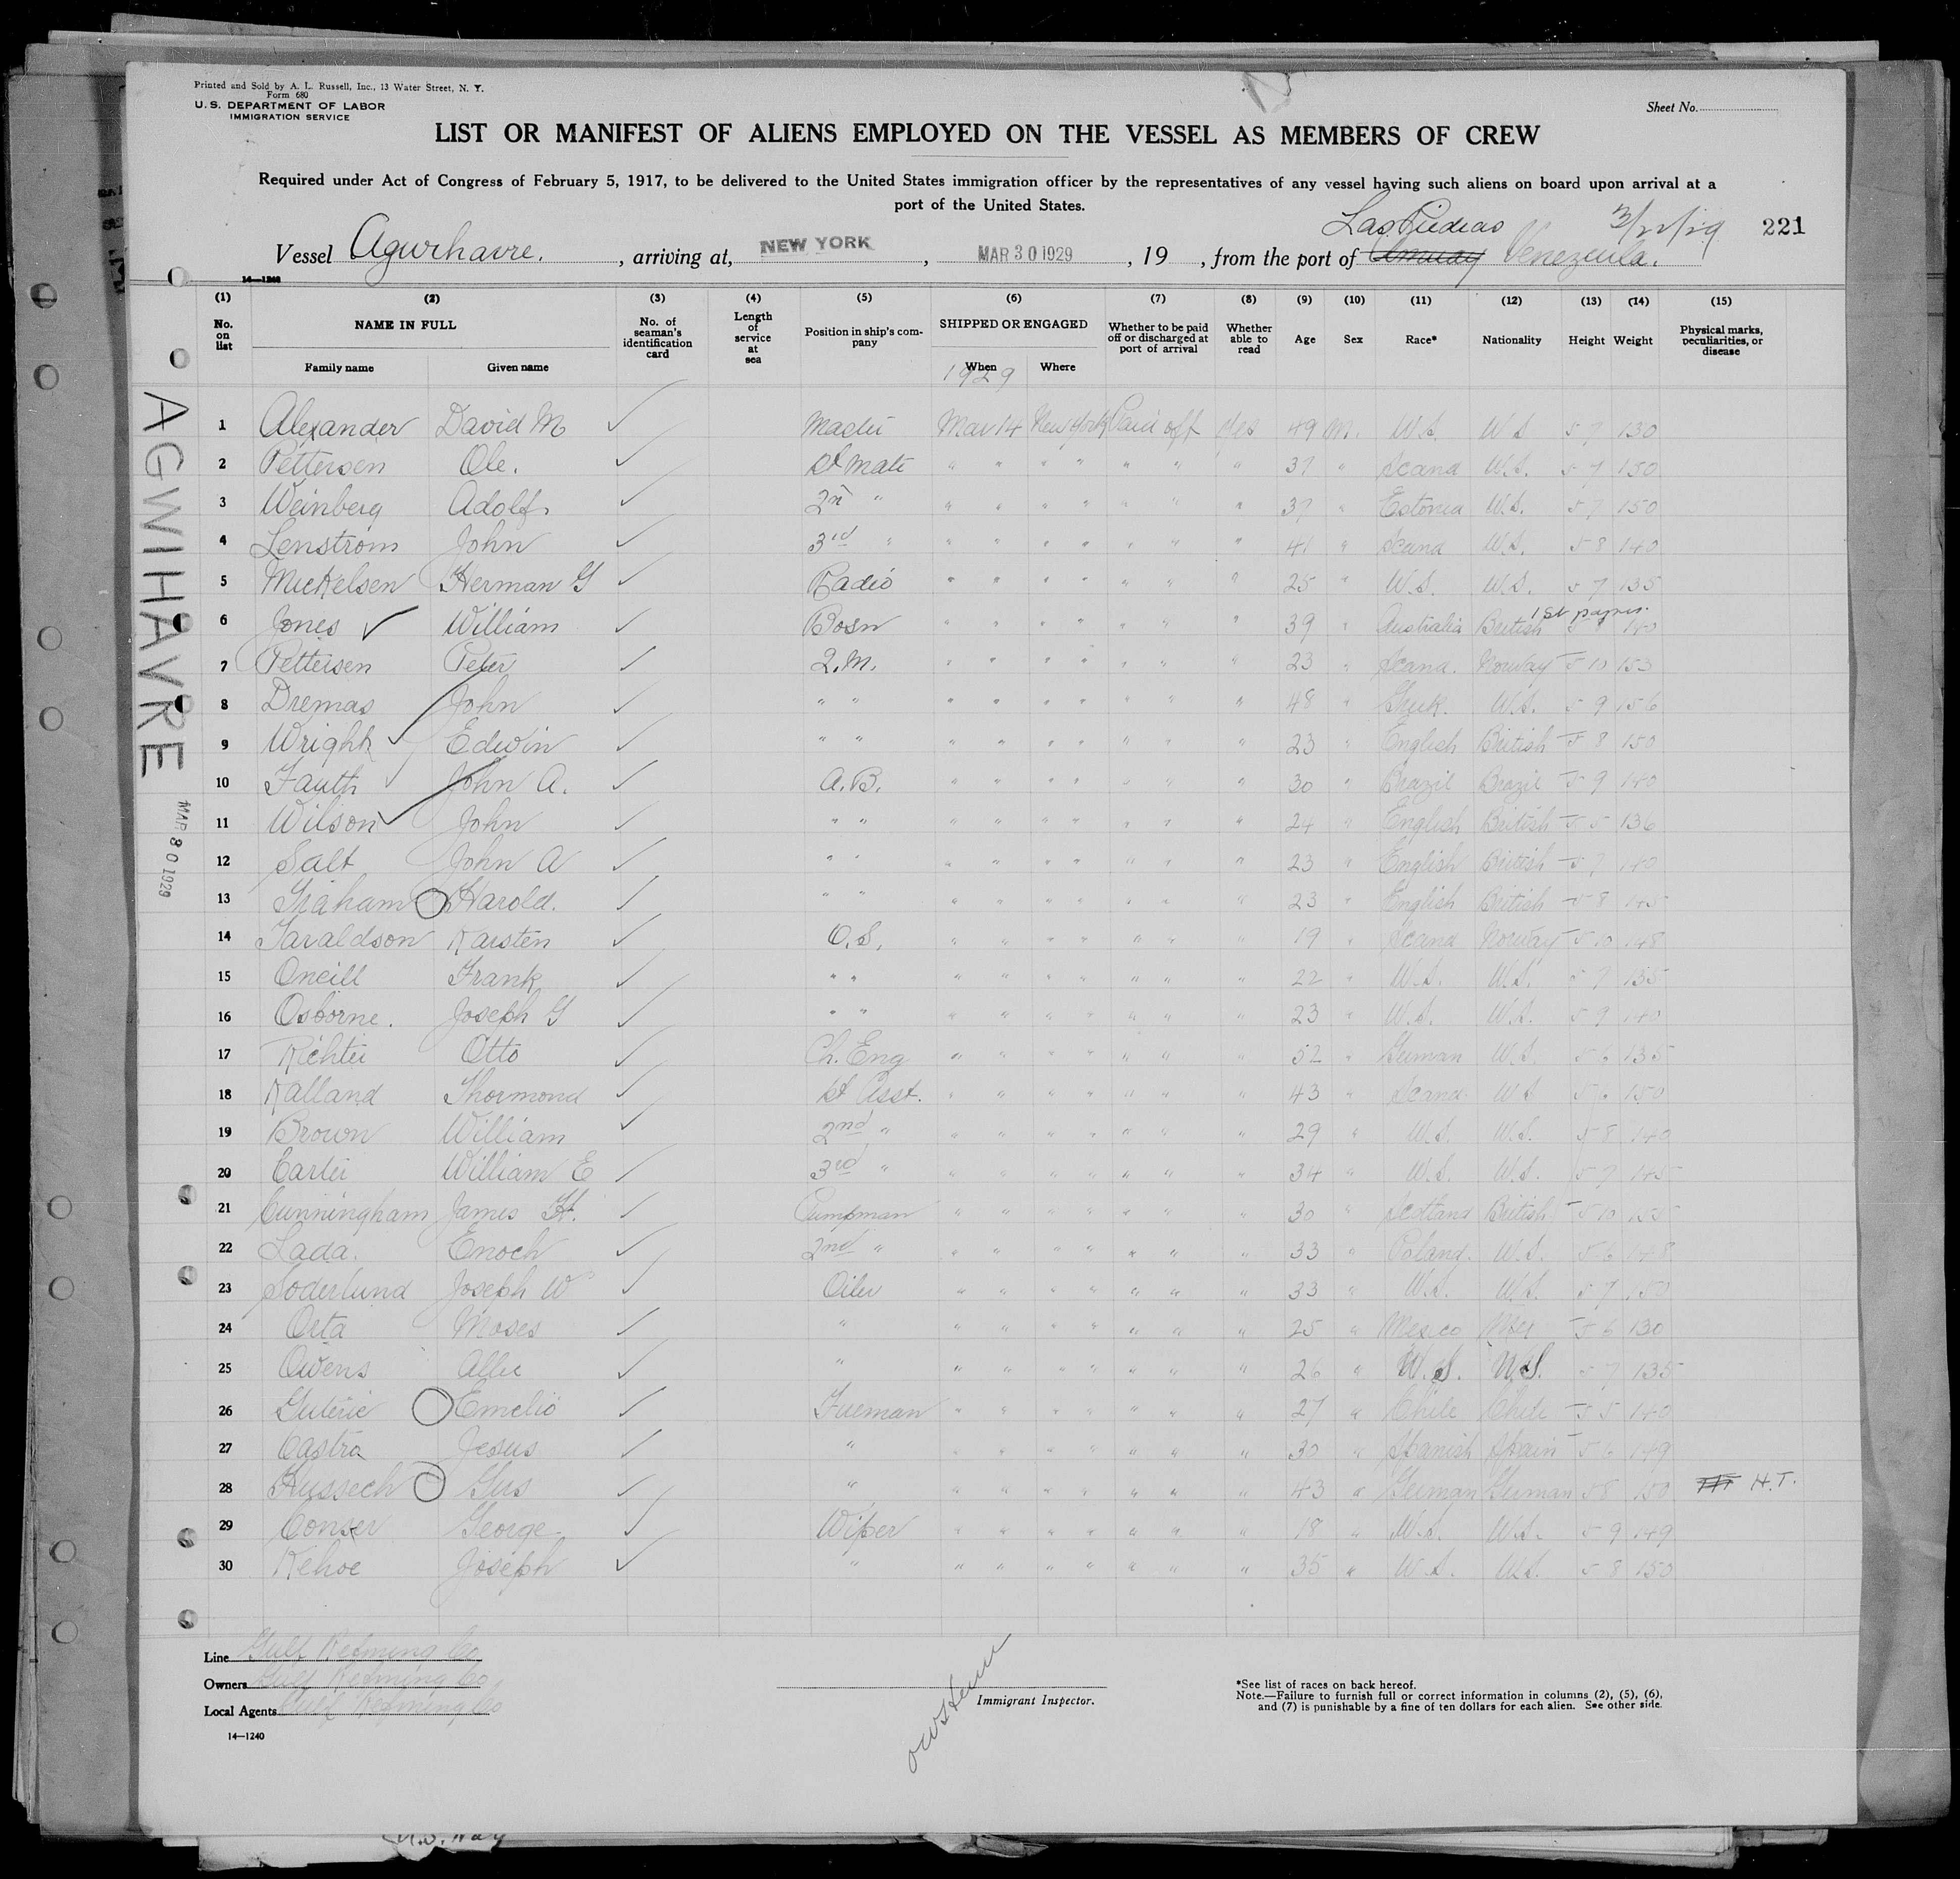 Printed and Sold by A. L. Russell, Inc., 13 Water Street, N. Y.
Form 680
U. S. DEPARTMENT OF LABOR
IMMIGRATION SERVICE
Sheet No.
LIST OR MANIFEST OF ALIENS EMPLOYED ON THE VESSEL AS MEMBERS OF CREW
Required under Act of Congress of February 5, 1917, to be delivered to the United States immigration officer by the representatives of any vessel having such aliens on board upon arrival at a
port of the United States.
Las Piedras 221
Vessel Agwihavre, arriving at, NEW YORK, MAR 30 1929, 19 , from the port of Amuay Venezuela.
14—1240
(1) (2) (3) (4) (5) (6) (7) (8) (9) (10) (11) (12) (13) (14) (15)
No. on list NAME IN FULL Family name Given name No. of seaman's identification card Length of service at sea Position in ship's company SHIPPED OR ENGAGED When Where Whether to be paid off or discharged at port of arrival Whether able to read Age Sex Race* Nationality Height Weight Physical marks, peculiarities, or disease
1929
1 Alexander David M Master Mar 14 New York Paid off Yes 49 M. U.S. U.S 5 7 130
2 Pettersen Ole. 1st Mate " " " " " " " 37 " Scand U.S. 5 7 150
3 Weinberg Adolf. 2nd " " " " " " " " 37 " Estonia U.S. 5 7 150
4 Lenstrom John 3rd " " " " " " " " 41 " Scand U.S. 5 8 140
5 Mickelsen Herman G Radio " " " " " " " 25 " U.S. U.S. 5 7 135
6 Jones William Bosn " " " " " " " 39 " Australia British 140
7 Pettersen Peter Q.M. " " " " " " " 23 " Scand. Norway 5 10 153
8 Dremas John " " " " " " " " " 48 " Greek. U.S. 5 9 156
9 Wright Edwin " " " " " " " " " 23 " English British 5 8 150
10 Fauth John A. A.B. " " " " " " " 30 " Brazil Brazil 5 9 140
11 Wilson John " " " " " " " " " 24 " English British 5 5 136
12 Salt John A " " " " " " " " " 23 " English British 5 7 140
13 Graham Harold. " " " " " " " " " 23 " English British 5 8 145
14 Taraldson Karsten O.S. " " " " " " " 19 " Scand Norway 5 10 148
15 Oneill Frank " " " " " " " " " 22 " U.S. U.S. 5 7 135
16 Osborne. Joseph G " " " " " " " " " 23 " U.S. U.S. 5 9 140
17 Richter Otto Ch. Eng " " " " " " " 52 " German U.S. 5 6 135
18 Kalland Thormond 1st Asst. " " " " " " " 43 " Scand U.S 5 6 150
19 Brown William 2nd " " " " " " " " 29 " U.S. U.S. 5 8 140
20 Carter William E 3rd " " " " " " " " 34 " U.S. U.S. 5 7 145
21 Cunningham James H. Pumpman " " " " " " " 30 " Scotland British 5 10 155
22 Lada. Enoch 2nd " " " " " " " " 33 " Poland. U.S. 5 6 148
23 Soderlund Joseph W Oiler " " " " " " " 33 " U.S. U.S. 5 7 150
24 Orta Moses " " " " " " " " 25 " Mexico Mex 5 6 130
25 Owens Allie " " " " " " " " 26 " U.S. U.S. 5 7 135
26 Emelio Fireman " " " " " " " 27 " Chile Chile 5 5 140
27 Castro Jesus " " " " " " " " 30 " Spanish Spain 5 6 149
28 Hussech Gus " " " " " " " " 43 " German German 5 8 150 H.T.
29 Conser George Wiper " " " " " " " 18 " U.S. U.S. 5 9 149
30 Kehoe Joseph " " " " " " " " 35 " U.S. U.S. 5 8 150
AGWIHAVRE
MAR 30 1929
Line Gulf Refining Co
Owners Gulf Refining Co.
Local Agents Gulf Refining Co
14—1240
Immigrant Inspector.
*See list of races on back hereof.
Note.—Failure to furnish full or correct information in columns (2), (5), (6),
and (7) is punishable by a fine of ten dollars for each alien. See other side.